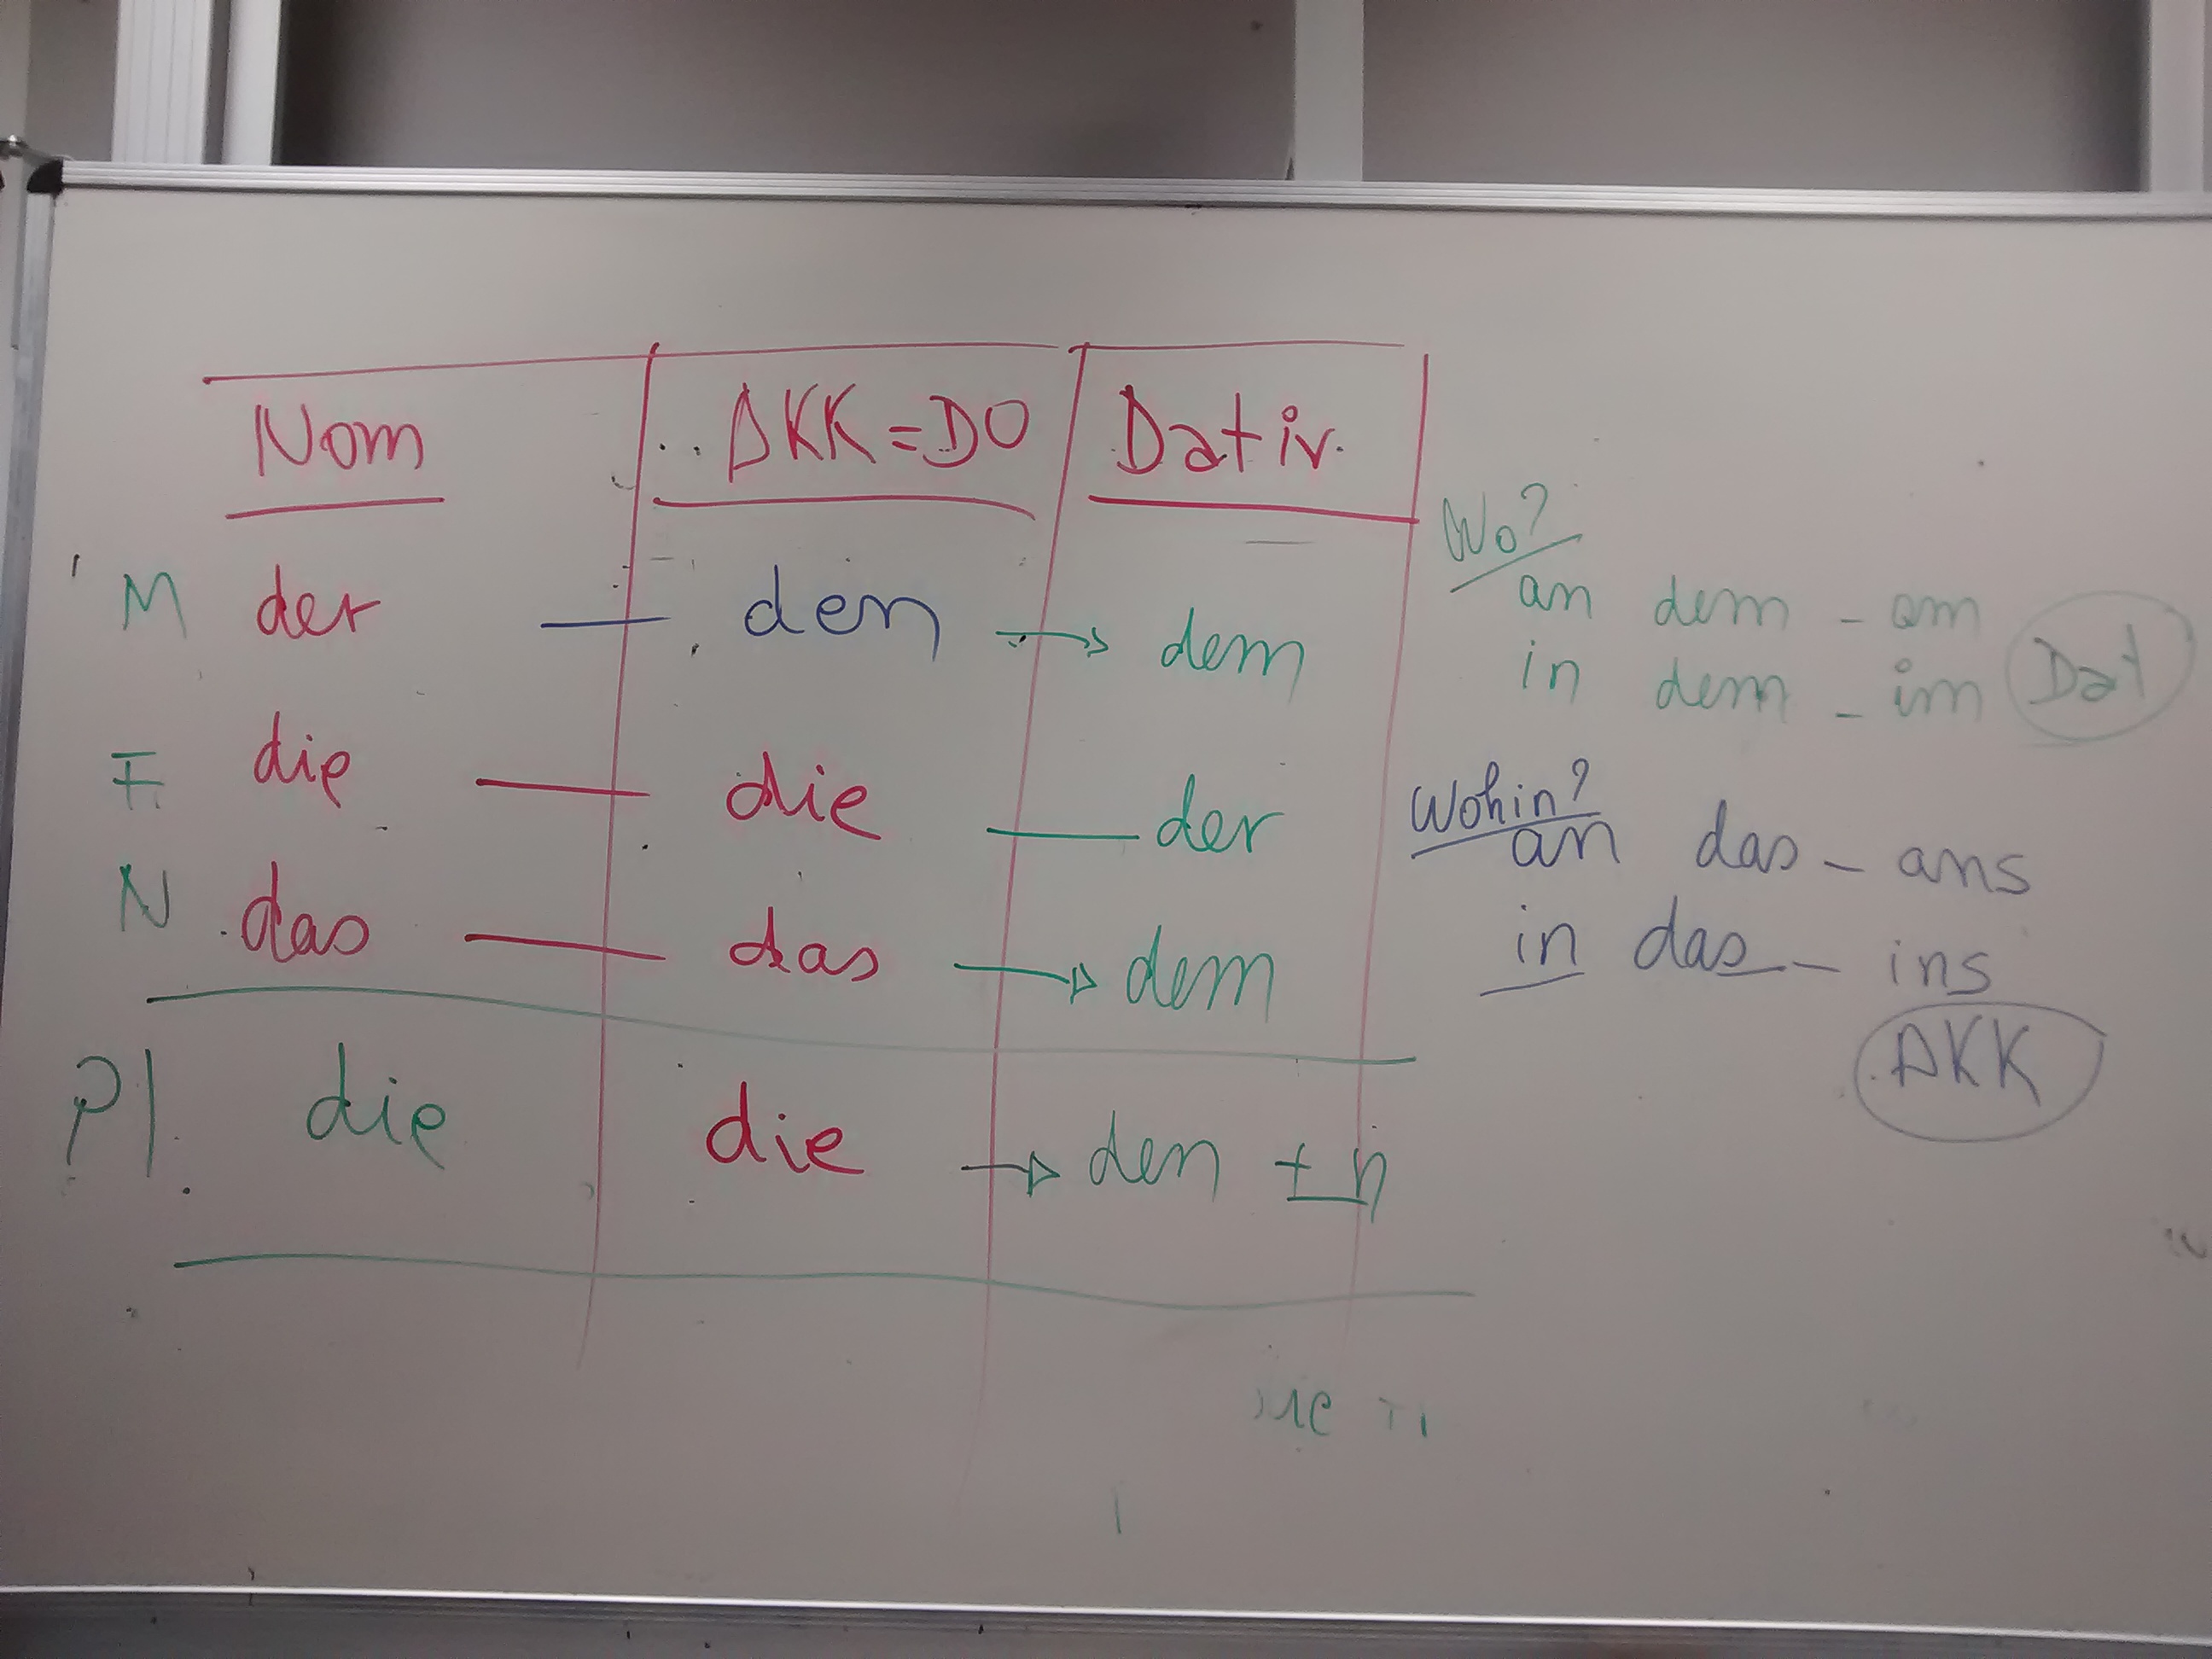 Nom AKK = DO Dativ.
M der — den → dem
F die — die — der
N das — das → dem
Pl. die die → den + n
Wo?
an dem - am
in dem - im Dat
Wohin?
an das - ans
in das - ins
AKK